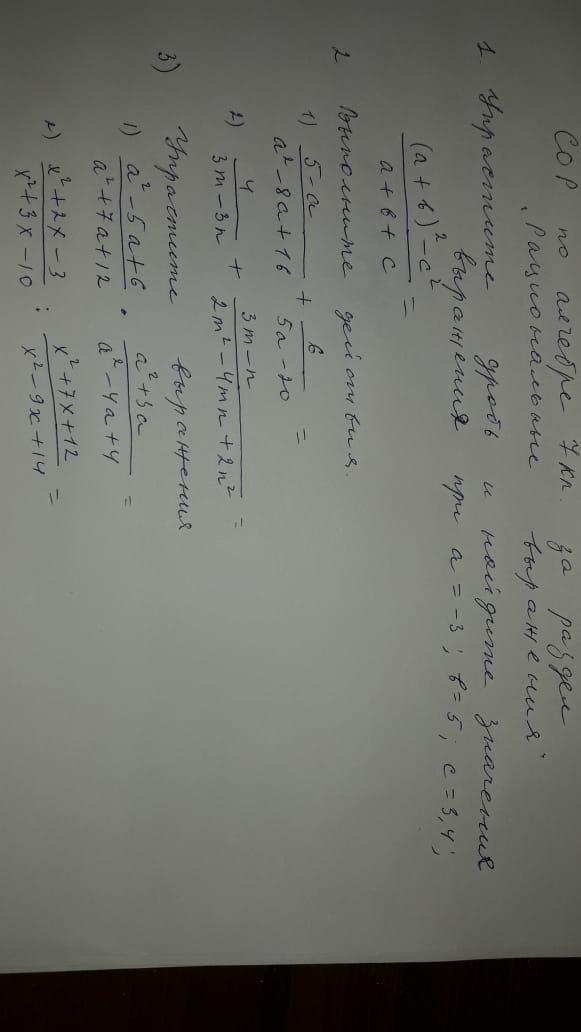 СОР по алгебре 7кл. за раздел
"Рациональные выражения"
1. Упростите дробь и найдите значения
выражения при a = -3; b = 5; c = 3,4;
(a + b)² - c² / a + b + c =
2 Выполните действия.
1) 5 - a / a² - 8a + 16 + 6 / 5a - 20 =
2) 4 / 3m - 3n + 3m - n / 2m² - 4mn + 2n² =
3) Упростите выражения
1) a² - 5a + 6 / a² + 7a + 12 · a² + 3a / a² - 4a + 4 =
2) x² + 2x - 3 / x² + 3x - 10 : x² + 7x + 12 / x² - 9x + 14 =